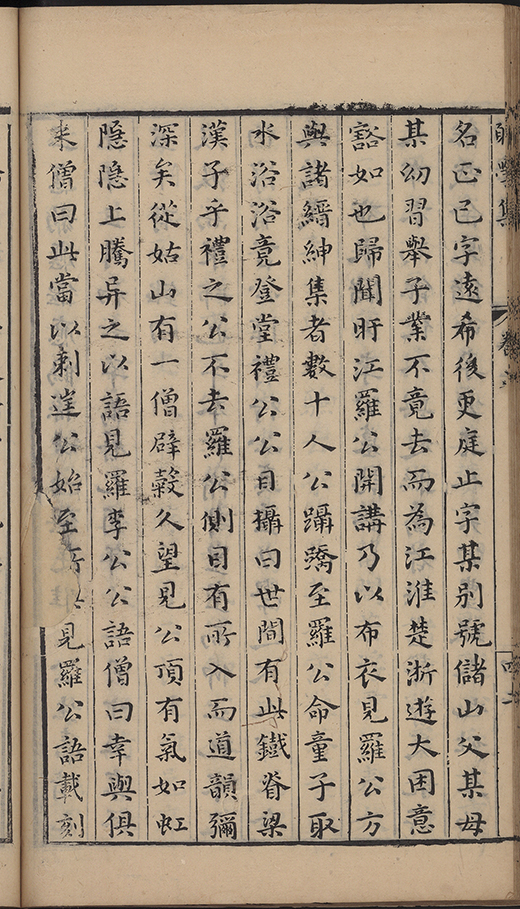 集
卷
名正已字遠希後更庭止字某别號儲山父某母
某幼習舉子業不竟去而為江淮楚浙遊大困意
豁如也歸聞盱江羅公開講乃以布衣見羅公方
與諸縉紳集者數十人公躡蹻至羅公命童子取
水浴浴竟登堂禮公公目攝曰世間有此鐵脊梁
漢子乎禮之公不去羅公側目有所入而道韻彌
深矣從姑山有一僧辟糓久望見公頂有氣如虹
隠隠上騰异之以語見羅李公公語僧曰幸與俱
来僧曰此當以刺逹公始至見羅公語載刻